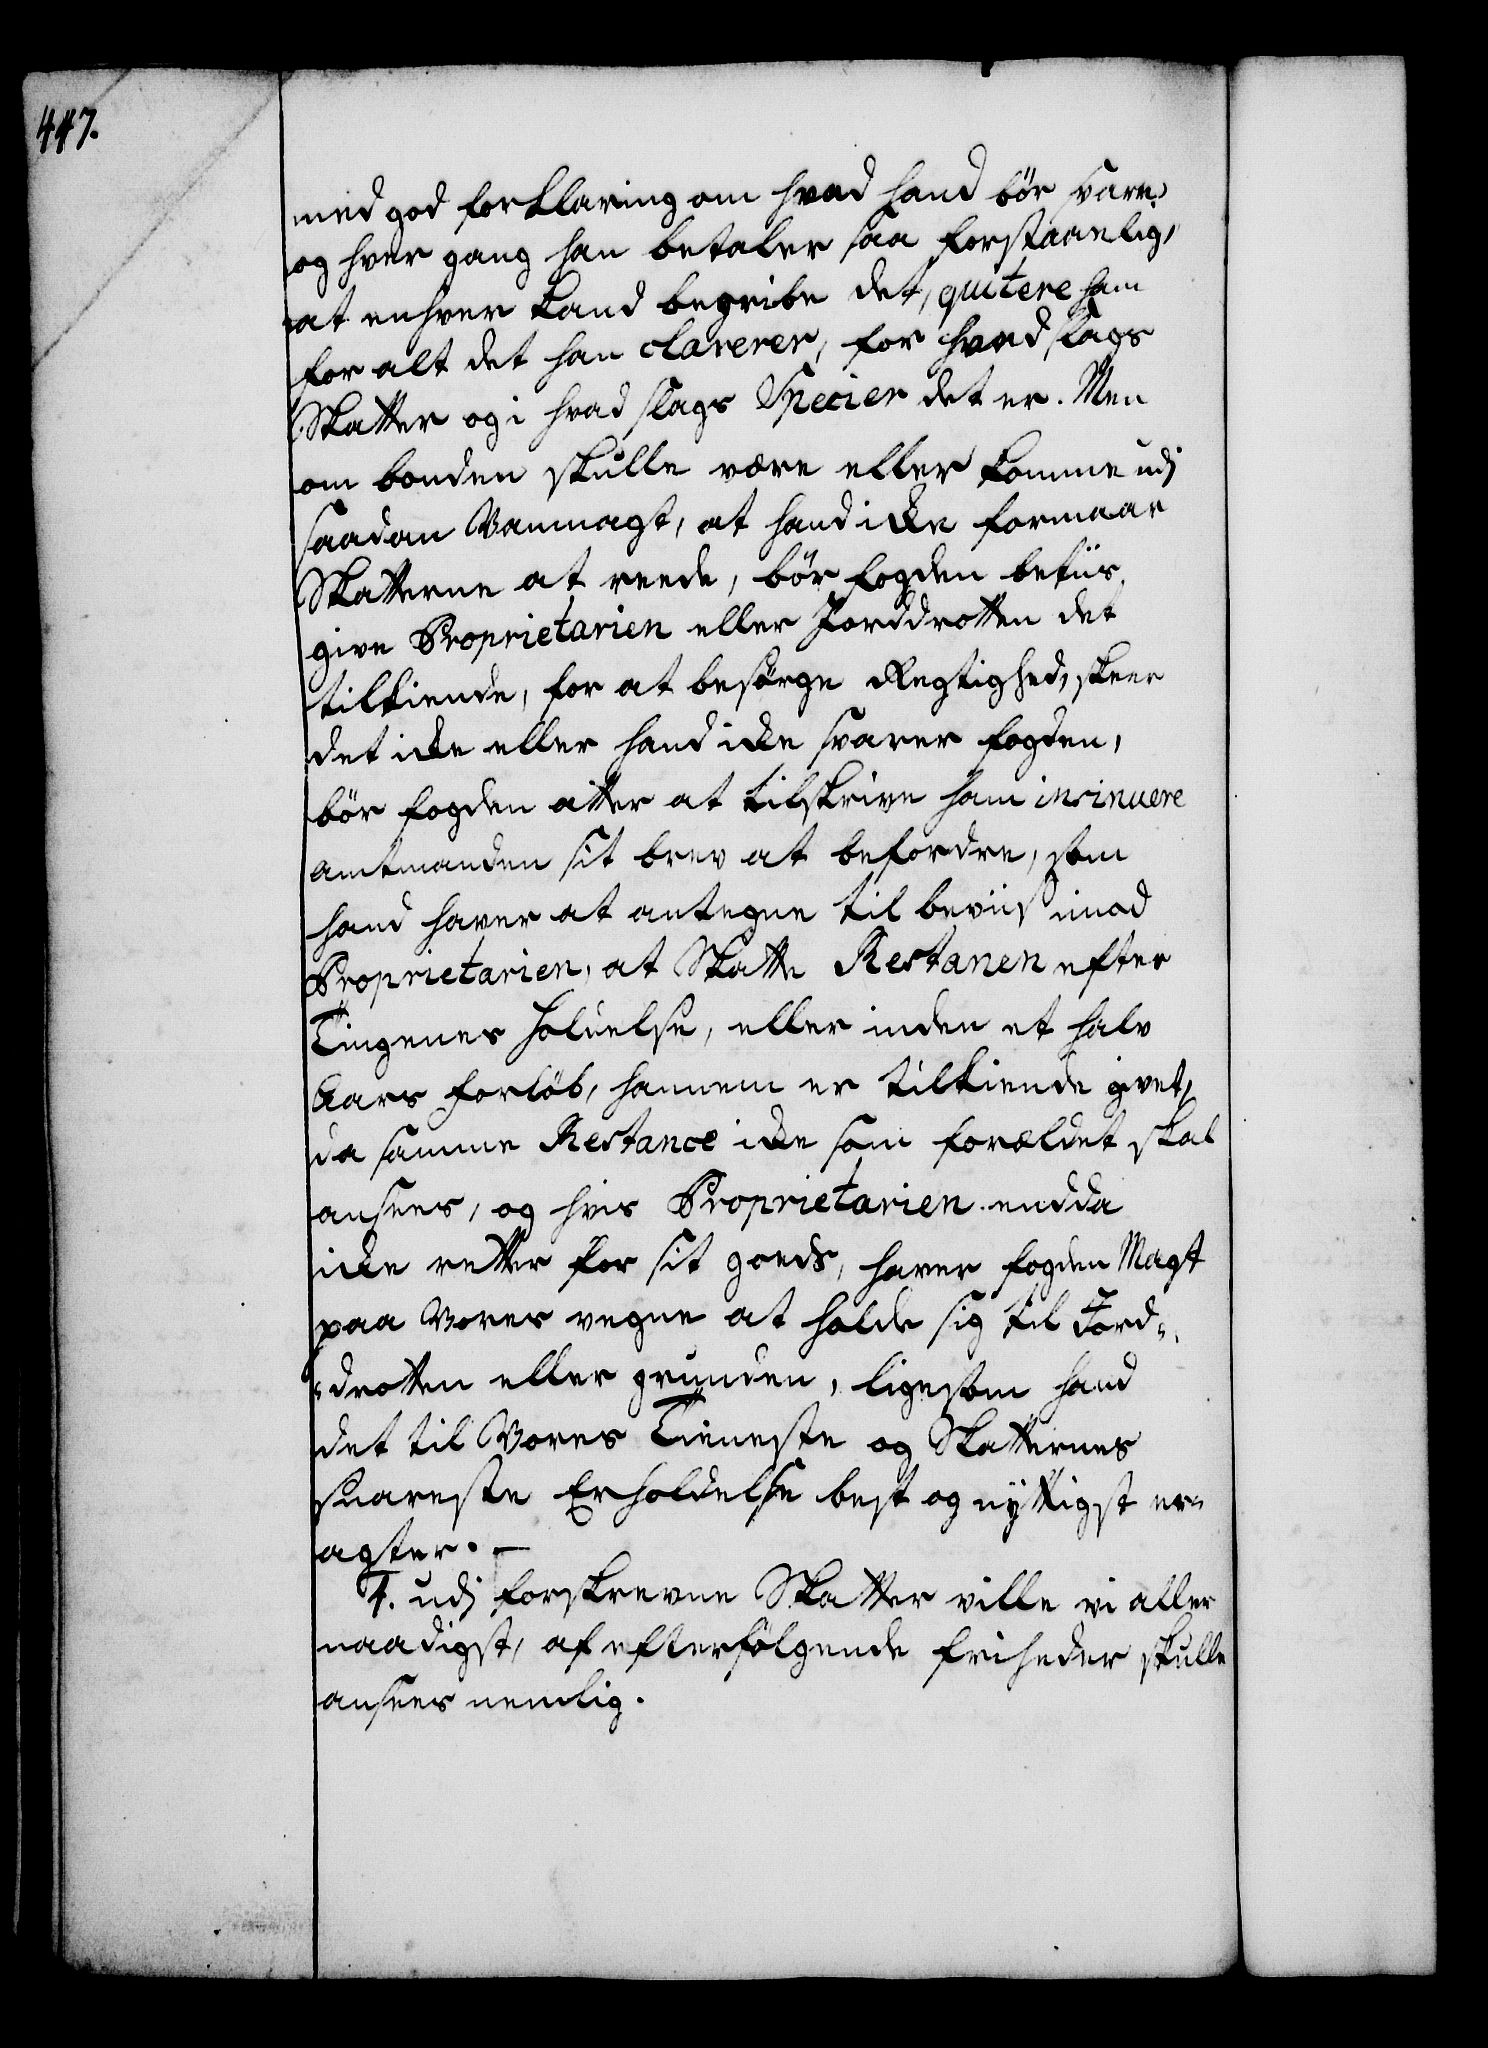 447.
med god forklaring om hvad hand bör svare,
og hver gang han betaler saa forstaanlig,
at enhver kand begribe det, quitere ham
for alt det han clarerer, for hvad slags
Skatter og i hvad slags Specier det er. Men
om bonden skulle være eller komme udj
saadan Vanmagt, at hand icke formaar
Skatterne at reede, bör fogden betiis
give Proprietarien eller Jorddrotten det
tilkiende, for at besörge Regtighed, skeer
det icke eller hand icke svarer fogden,
bör fogden atter at tilskrive ham insinuere
amtmanden sit brev at befordre, som
hand haver at antegne til beviis imod
Proprietarien, at Skatte Restanen efter
Tingenes holdelse, eller inden et halv
Aars forlöb, hannem er tilkiende givet,
da samme Restance icke som forældet skal
ansees, og hvis Proprietarien endda
icke retter for sit goeds, haver fogden Magt
paa Vores vegne at holde sig til Jord-
-drotten eller grunden, ligesom hand
det til Vores Tieneste og Skatternes
snareste Erholdelse best og nyttigst er-
agter. -
4. udj forskrevne Skatter ville vi aller
naadigst, af efterfölgende friheder skulle
ansees nemlig.